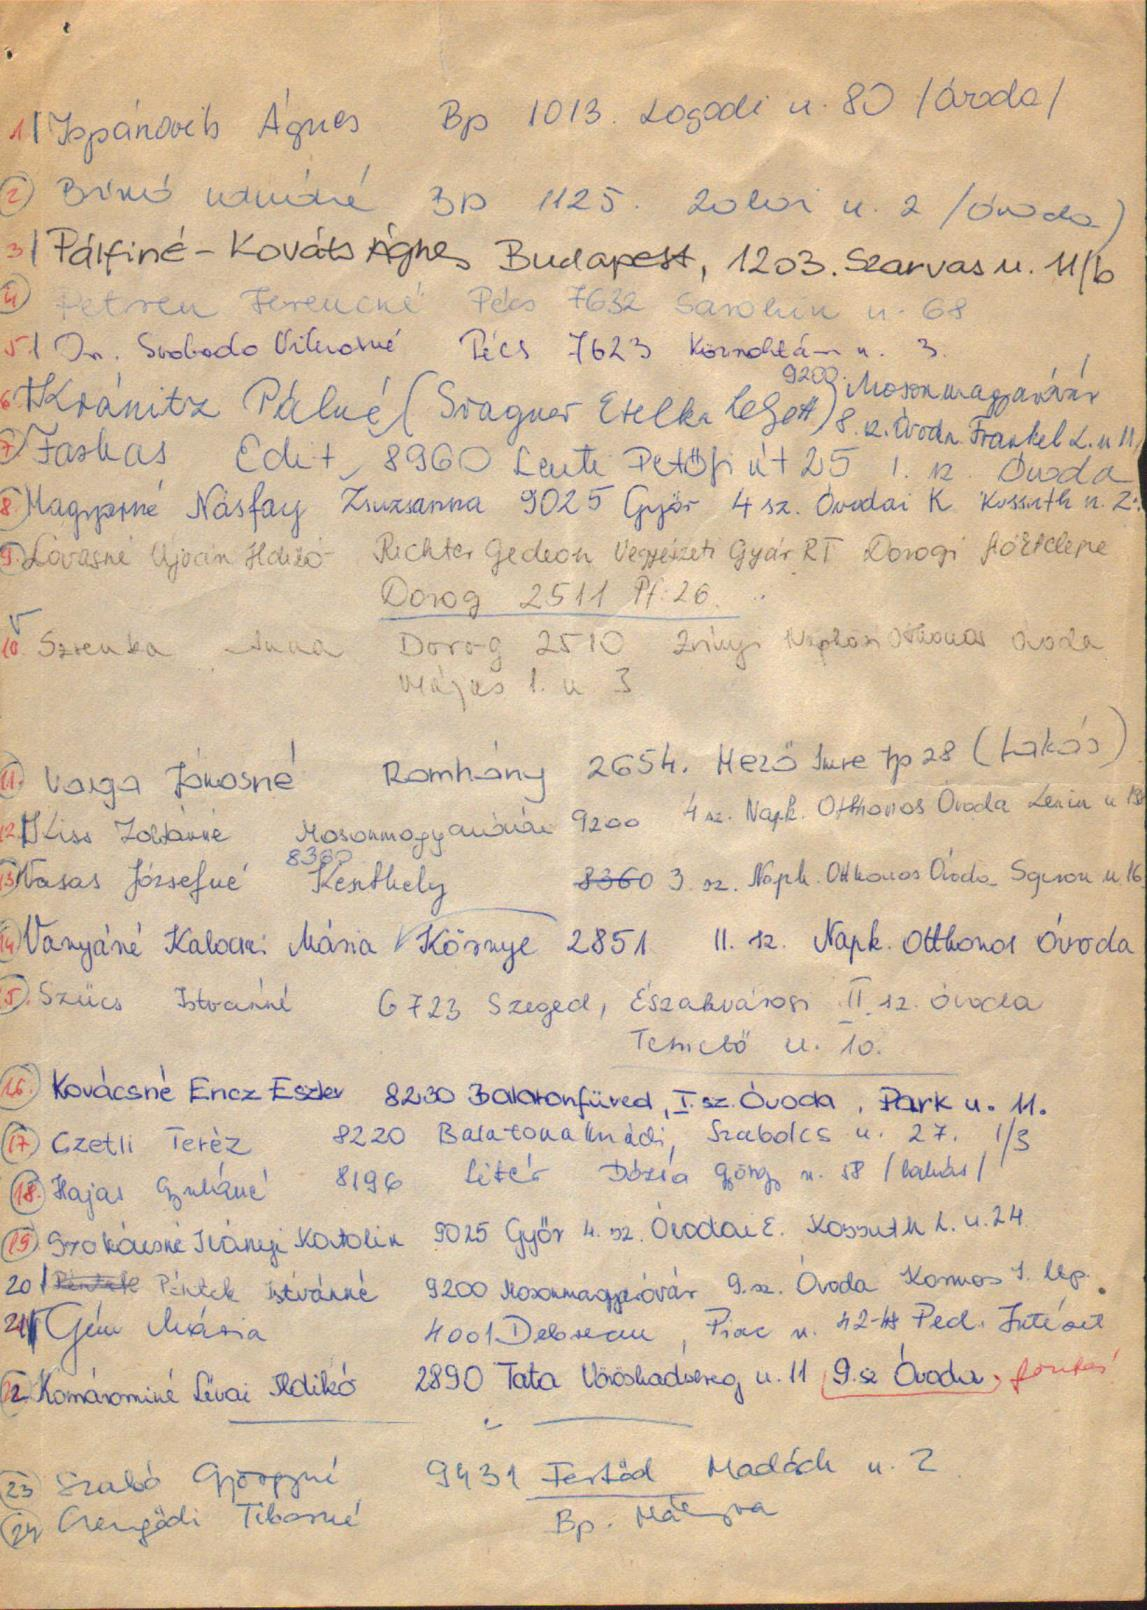 1/ Ispánovits Ágnes Bp 1013. Logodi u. 80 /óvoda/
2 Bp 1125. u. 2 /óvoda/
3/ Pálfiné-Kováts Ágnes Budapest, 1203. Szarvas u. 11/b
4 Ferencné Pécs 7632 u. 68
5/ Dr. Svoboda Vilmosné Pécs 7623 u. 3.
9200 Mosonmagyaróvár
6 Kránitz Pálné (Svagner Etelka 8. sz. Óvoda Frankel L. u 11
7 Farkas Edit, 8960 Lenti Petőfi út 25 1. sz. Óvoda
8. Magyarné Násfay Zsuzsanna 9025 Győr 4 sz. Óvodai K Kossuth u. 2
9. Lovasné Ildikó Richter Gedeon Vegyészeti Gyár RT Dorogi
Dorog 2511 Pf. 26.
10. Szrenka Anna Dorog 2510 Zrínyi Napközi Otthonos Óvoda
Május 1. u 3
11. Varga Jánosné Romhány 2654. Mező Imre tp 28 (Lakás)
12. Kiss Zoltánné Mosonmagyaróvár 9200 4 sz. Napk. Otthonos Óvoda Lenin u
8360
13 Vasas Józsefné Keszthely 8360 3. sz. Napk. Otthonos Óvoda Sopron u. 16
14 Vanyáné Kalocsai Mária Környe 2851 II. sz. Napk. Otthonos Óvoda
15. Szücs Istvánné 6723 Szeged, Északvárosi II. sz. óvoda
Temető u. 10.
16. Kovácsné Encz Eszter 8230 Balatonfüred, I. sz. Óvoda, Park u. 11.
17 Czetli Teréz 8220 Balatonalmádi, Szabolcs u. 27. 1/3
18. Hajas Gyuláné 8196 Litér Dózsa György u. 58 /lakás/
19 Iványi Katalin 9025 Győr 4. sz. Óvodai E. Kossuth L. u. 24
20/ Péntek Péntek Istvánné 9200 Mosonmagyaróvár 9. sz. Óvoda Kormos I. lkp.
21 Gém Mária 4001 Debrecen, Piac u. 42-48 Ped. Intézet
22 Komárominé Lévai Ildikó 2890 Tata Vöröshadsereg u. 11 9. sz Óvoda,
23 Szabó Györgyné 9431 Fertőd Madách u. 2
24 Csengődi Tiborné Bp. Mátyra